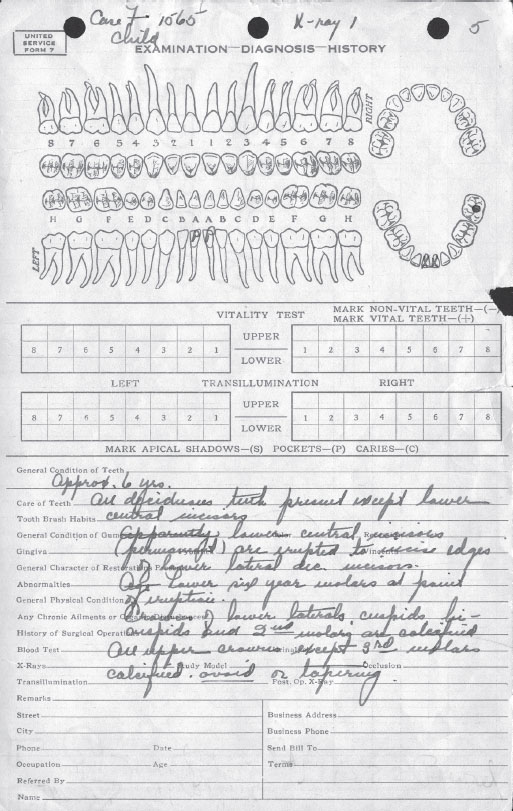 Case F 1565
Child
X-ray 1
5
UNITED
SERVICE
FORM 7
EXAMINATION—DIAGNOSIS—HISTORY
RIGHT
8 7 6 5 4 3 2 1 1 2 3 4 5 6 7 8
H G F E D C B A A B C D E F G H
LEFT
VITALITY TEST
MARK NON-VITAL TEETH—(—)
MARK VITAL TEETH—(+)
UPPER
8 7 6 5 4 3 2 1 1 2 3 4 5 6 7 8
LOWER
LEFT TRANSILLUMINATION RIGHT
UPPER
8 7 6 5 4 3 2 1 1 2 3 4 5 6 7 8
LOWER
MARK APICAL SHADOWS—(S) POCKETS—(P) CARIES—(C)
General Condition of Teeth
Approx. 6 yrs.
Care of Teeth All deciduous teeth present except lower
Tooth Brush Habits central incisors
General Condition of Gums Apparently lower central incisors
Gingiva (permanent) are erupted to incise edges
General Character of Restorations of lower lateral dec. incisors.
Abnormalities Lower six year molars at point
General Physical Condition of eruption.
Any Chronic Ailments or Crowns of lower laterals, cuspids, bi-
History of Surgical Operations cuspids and 2nd molars are calcified
Blood Test All upper crowns except 3rd molars
X-Rays calcified. Study Model ovoid or tapering. Occlusion
Transillumination Post. Op. X-Ray
Remarks
Street Business Address
City Business Phone
Phone Date Send Bill To
Occupation Age Terms
Referred By
Name